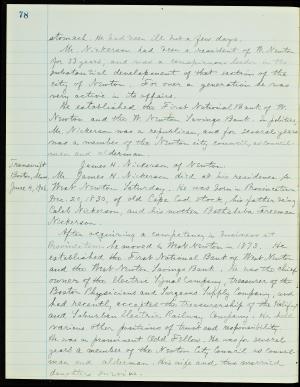 78
stomach. He had been ill but a few days.
Mr. Nickerson had been a resident of W. Newton
for 33 years, and was a conspicuous leader in the
substantial development of that section of the
city of Newton. For over a generation he was
very active in its affairs.
He established the First National Bank of W.
Newton and the W. Newton Savings Bank. In politics,
Mr. Nickerson was a republican, and for several years
was a member of the Newton city council, as council-
man and alderman.
Transcript James H. Nickerson of Newton.
Boston, Mass. Mr. James H. Nickerson died at his residence in
June 4, West Newton Saturday. He was born in Provincetown
Dec. 20, 1830, of old Cape Cod stock, his father being
Caleb Nickerson, and his mother Bathsheba Freeman
Nickerson
After acquiring a competency in business at
Provincetown he moved to West Newton in 1873. He
established the First National Bank of West Newton
and the West Newton Savings Bank. He was the chief
owner of the Electric Signal Company, treasurer of the
Boston Physicians and Surgeons Supply Company, and
had recently accepted the treasurership of the
and Suburban Electric Railway Company. He held
various other positions of trust and responsibility.
He was a prominent Odd Fellow. He was for several
years a member of the Newton City Council as council-
man and alderman. His wife and two married
daughters survive.